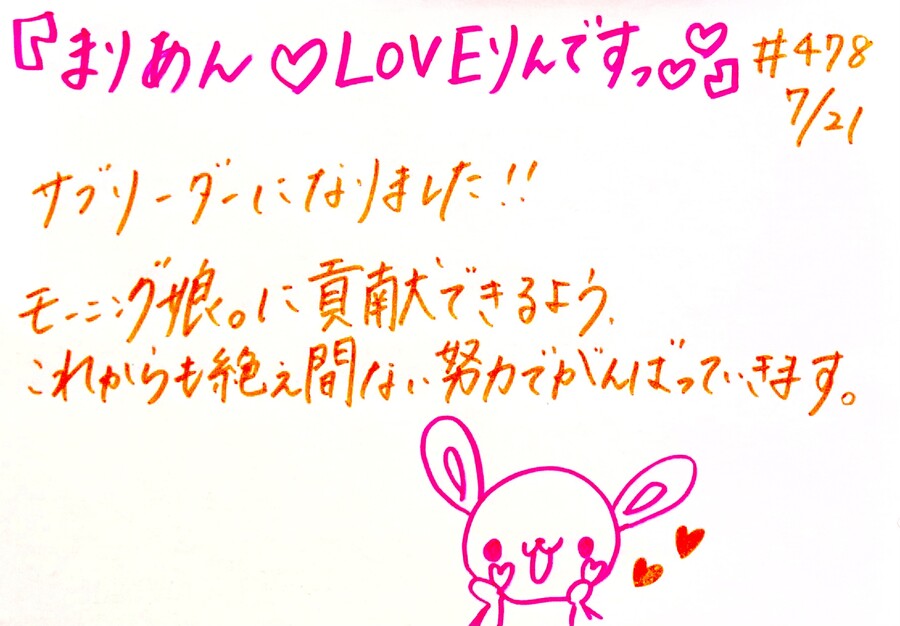 『まりあん♡LOVEりんですっ♡♡』 #478
7/21
サブリーダーになりました!!
モーニング娘。に貢献できるよう、
これからも絶え間ない努力でがんばっていきます。